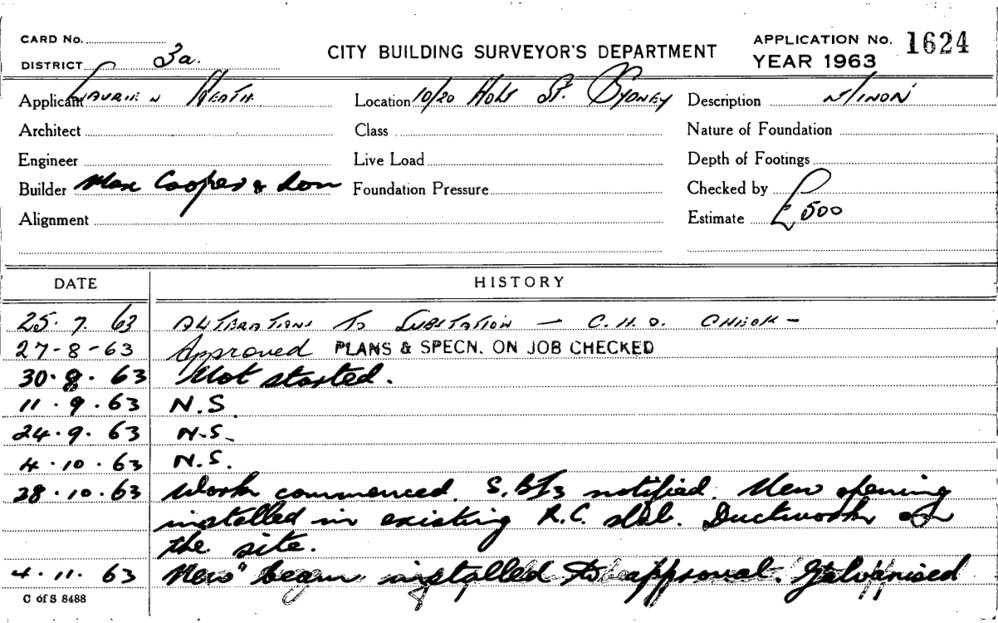 CARD No.
DISTRICT 3a.
CITY BUILDING SURVEYOR'S DEPARTMENT
APPLICATION No. 1624
YEAR 1963
Applicant Laurie W Heath. Location 10/20 Sydney Description Minor
Architect Class Nature of Foundation
Engineer Live Load Depth of Footings
Builder Max Cooper & Son Foundation Pressure Checked by
Alignment Estimate £500
DATE HISTORY
25. 7. 63 ALTERATIONS TO SUBSTATION — C.H.O. CHECK —
27-8-63 Approved PLANS & SPECN. ON JOB CHECKED
30. 8. 63 Not started.
11. 9. 63 N.S
24. 9. 63 N.S.
4. 10. 63 N.S.
28. 10. 63 Work commenced. notified. New opening
installed in existing R.C. slab. Ductwork on
the site.
4. 11. 63 New beam installed to approval. Galvanised
C of S 8488